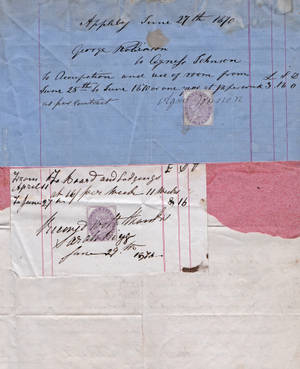 Appleby June 27th 1870
George Robinson
to Agness Johnson
to Ocupation and use of room from
June 25th to June 1870 one year at per week £ S D
as per contract 3 16 0
Agnes Johnson
From To Board and Lodgings £ S D
April 11 at 16/ per Week 11 Weeks
To June 27 8 16
Received with thanks
Sarah
June 27th 1870